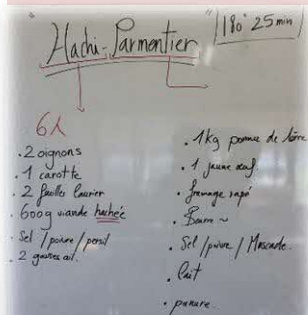 Hachi-Parmentier
180° 25 min
6λ
. 2 oignons
. 1 carotte
. 2 feuilles laurier
. 600g viande hachée
. Sel / poivre / persil
. 2 gousses ail.
. 1kg pomme de terre
. 1 jaune œuf.
. fromage rapé
. Beurre ~
. Sel / poivre / Muscade.
. Lait
. panure.